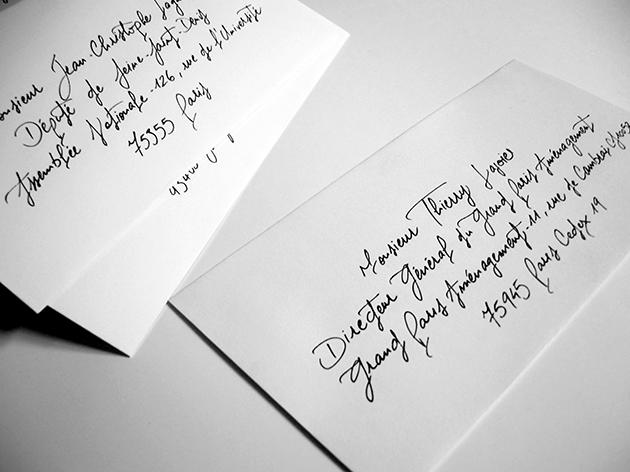 Monsieur Jean-Christophe
Député de Seine-Saint-Denis
Assemblée Nationale - 126, rue de l'Université
75355 Paris
Monsieur Thierry Lajoie
Directeur Général du Grand Paris Aménagement
Grand Paris Aménagement - 11, rue de Cambrai
75945 Paris Cedex 19